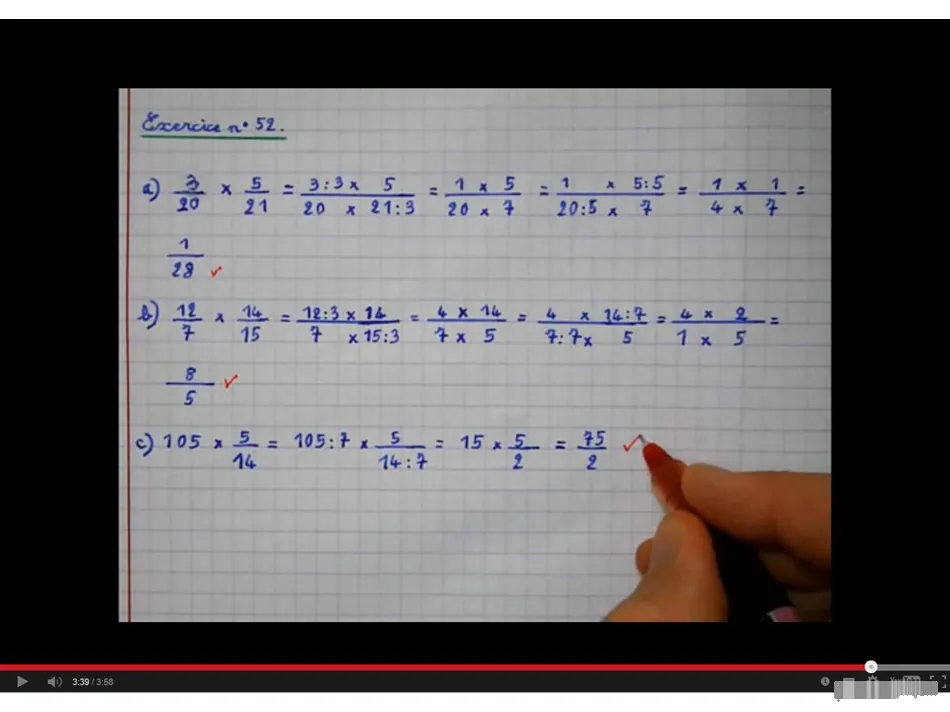 Exercice n° 52.
a) 3/20 × 5/21 = 3:3 × 5 / 20 × 21:3 = 1 × 5 / 20 × 7 = 1 × 5:5 / 20:5 × 7 = 1 × 1 / 4 × 7 =
1/28 ✓
b) 12/7 × 14/15 = 12:3 × 14 / 7 × 15:3 = 4 × 14 / 7 × 5 = 4 × 14:7 / 7:7 × 5 = 4 × 2 / 1 × 5 =
8/5 ✓
c) 105 × 5/14 = 105:7 × 5 / 14:7 = 15 × 5/2 = 75/2 ✓
3:39 / 3:58